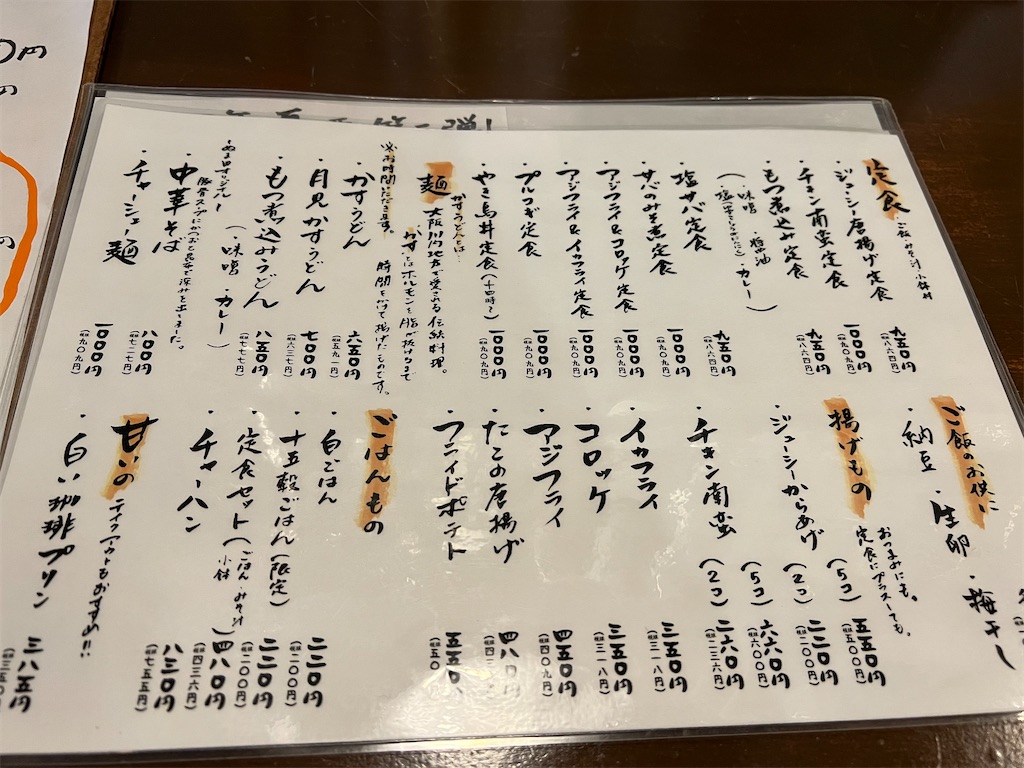 定食 ご飯・みそ汁・小鉢付
・ジューシー唐揚げ定食 九五〇円 (税抜八六四円)
・チキン南蛮定食 一〇〇〇円 (税抜九〇九円)
・もつ煮込み定食 九五〇円 (税抜八六四円)
(・味噌・醤油
・塩 ・カレー)
・塩サバ定食 九五〇円 (税抜八六四円)
・サバのみそ煮定食 一〇〇〇円 (税抜九〇九円)
・アジフライ&コロッケ定食 一〇〇〇円 (税抜九〇九円)
・アジフライ&イカフライ定食 一〇〇〇円 (税抜九〇九円)
・プルコギ定食 一〇〇〇円 (税抜九〇九円)
・やき鳥丼定食(十四時~) 一〇〇〇円 (税抜九〇九円)
麺
かすうどんとは…
大阪河内地方で愛される伝統料理。
かすとはホルモンを脂が抜けるまで
時間をかけて揚げたものです。
※お時間いただきます
・かすうどん 六五〇円 (税抜五九一円)
・月見かすうどん 七〇〇円 (税抜六三七円)
・もつ煮込みうどん 八五〇円 (税抜七七七円)
(・味噌 ・カレー)
豚骨スープにかつおと昆布で深みを出しました。
・中華そば 八〇〇円 (税抜七二七円)
・チャーシュー麺 一〇〇〇円 (税抜九〇九円)
ご飯のお供に
・納豆 ・生卵 ・梅干し
揚げもの
おつまみにも。
定食にプラスしても。
・ジューシーからあげ (5コ) 五五〇円 (税抜五〇〇円)
(2コ) 二二〇円 (税抜二〇〇円)
・チキン南蛮 (5コ) 六六〇円 (税抜六〇〇円)
(2コ) 二六〇円 (税抜二三六円)
・イカフライ 三五〇円 (税抜三一八円)
・コロッケ 三五〇円 (税抜三一八円)
・アジフライ 四五〇円 (税抜四〇九円)
・たこの唐揚げ 四八〇円
・フライドポテト 五五〇
ごはんもの
・白ごはん 二二〇円 (税抜二〇〇円)
・十五穀ごはん(限定) 二二〇円 (税抜二〇〇円)
・定食セット(ごはん・みそ汁 小鉢) 四八〇円 (税抜四三六円)
・チャーハン 八三〇円 (税抜七五五円)
甘いの テイクアウトもおすすめ!!
・白い珈琲プリン 三八五円 (税抜三五〇円)
〇円
円
円